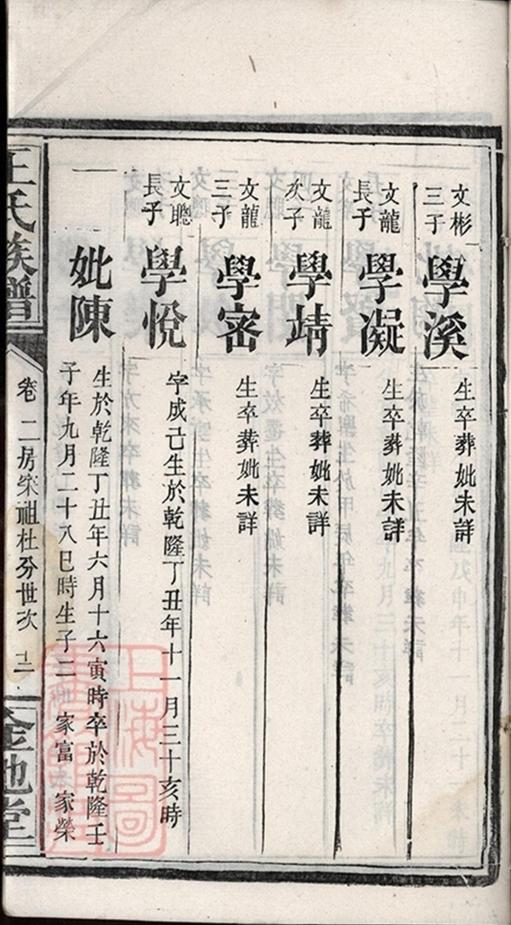 文彬
三子
學溪
生卒葬妣未詳
文龍
長子
學凝
生卒葬妣未詳
文龍
次子
學靖
生卒葬妣未詳
文龍
三子
學密
生卒葬妣未詳
文聰
長子
學悅
字成己生於乾隆丁丑年十一月三十亥時
妣陳
生於乾隆丁丑年六月十六寅時卒於乾隆壬
子年九月二十八巳時生子二 家富 家榮
王氏族譜
卷二房宋祖杜分世次
金池堂
上海圖